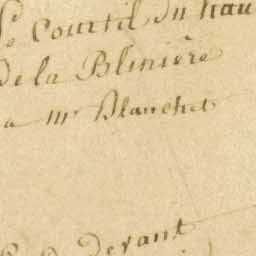 Le Courtil du hau
de la Blinière
a mr Blanchet
devant